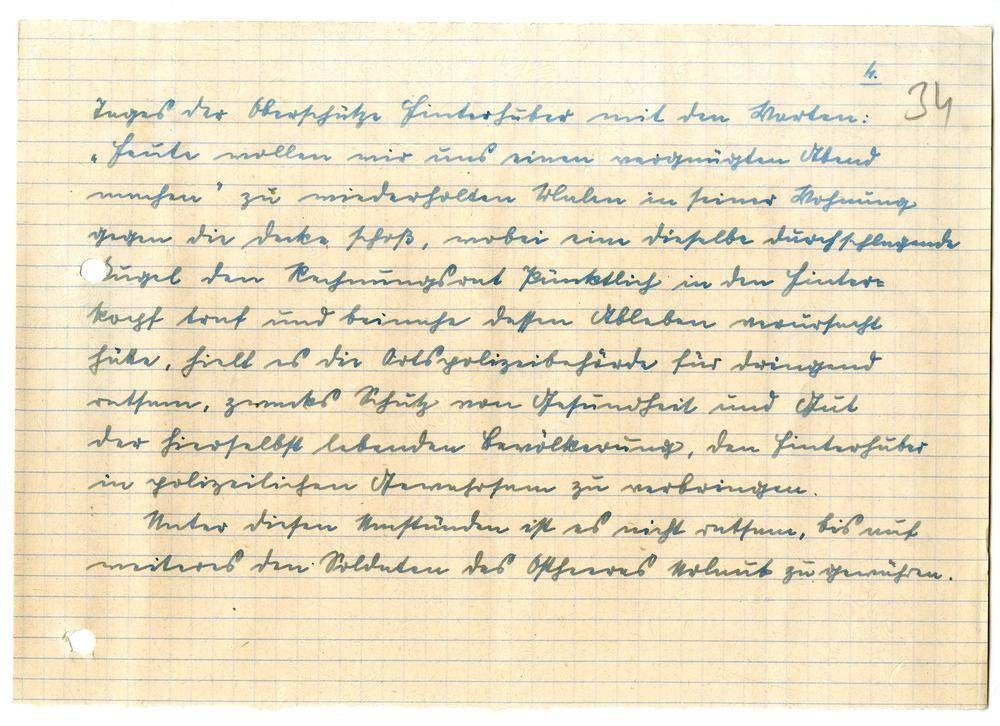 4.
34
Tages der Oberschütze Hinterhuber mit den Worten:
„Heute wollen wir uns einen vergnügten Abend
machen" zu wiederholten Malen in seiner Wohnung
gegen die Decke schoß, wobei eine dieselbe durchschlagende
Kugel den Rechnungsrat Pünktlich in den Hinter-
kopf traf und beinahe dessen Ableben verursacht
hätte, hielt es die Ortspolizeibehörde für dringend
ratsam, zwecks Schutz von Gesundheit und Gut
der hierselbst lebenden Bevölkerung, den Hinterhuber
in polizeilichen Gewahrsam zu verbringen.
Unter diesen Umständen ist es nicht ratsam, bis auf
weiteres den Soldaten des Ostheeres Urlaub zu gewähren.